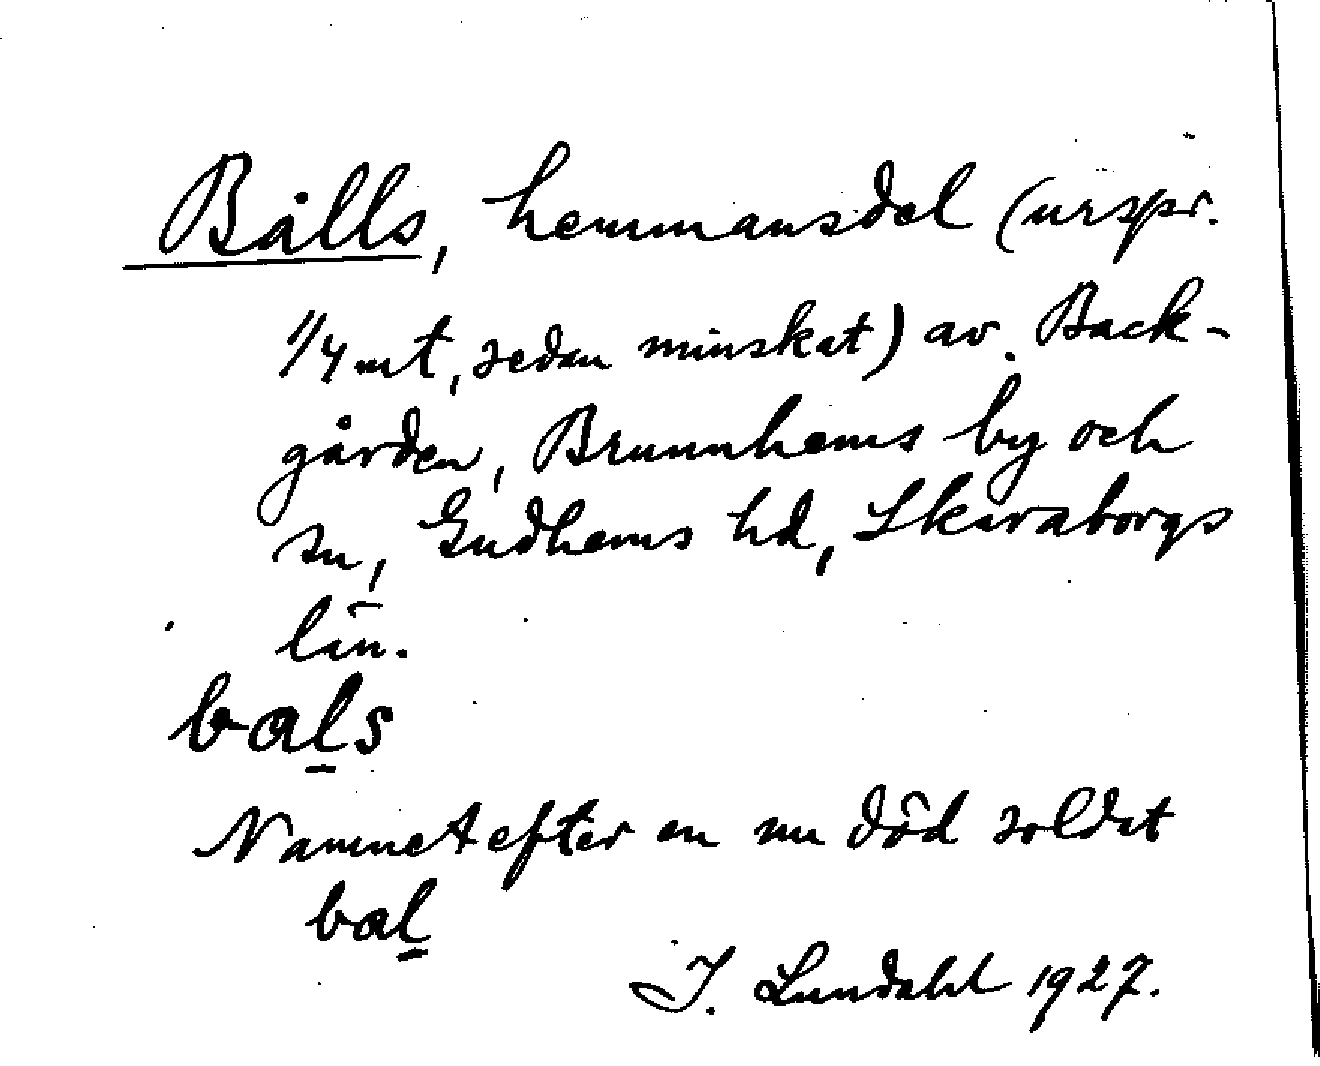 Bålls, hemmansdel (urspr.
1/4 mt, sedan minskat) av Back-
gården, Brunnhems by och
sn, Gudhems hd, Skaraborgs
län.
bals
Namnet efter en nu död soldat
bal
I. Lundahl 1927.